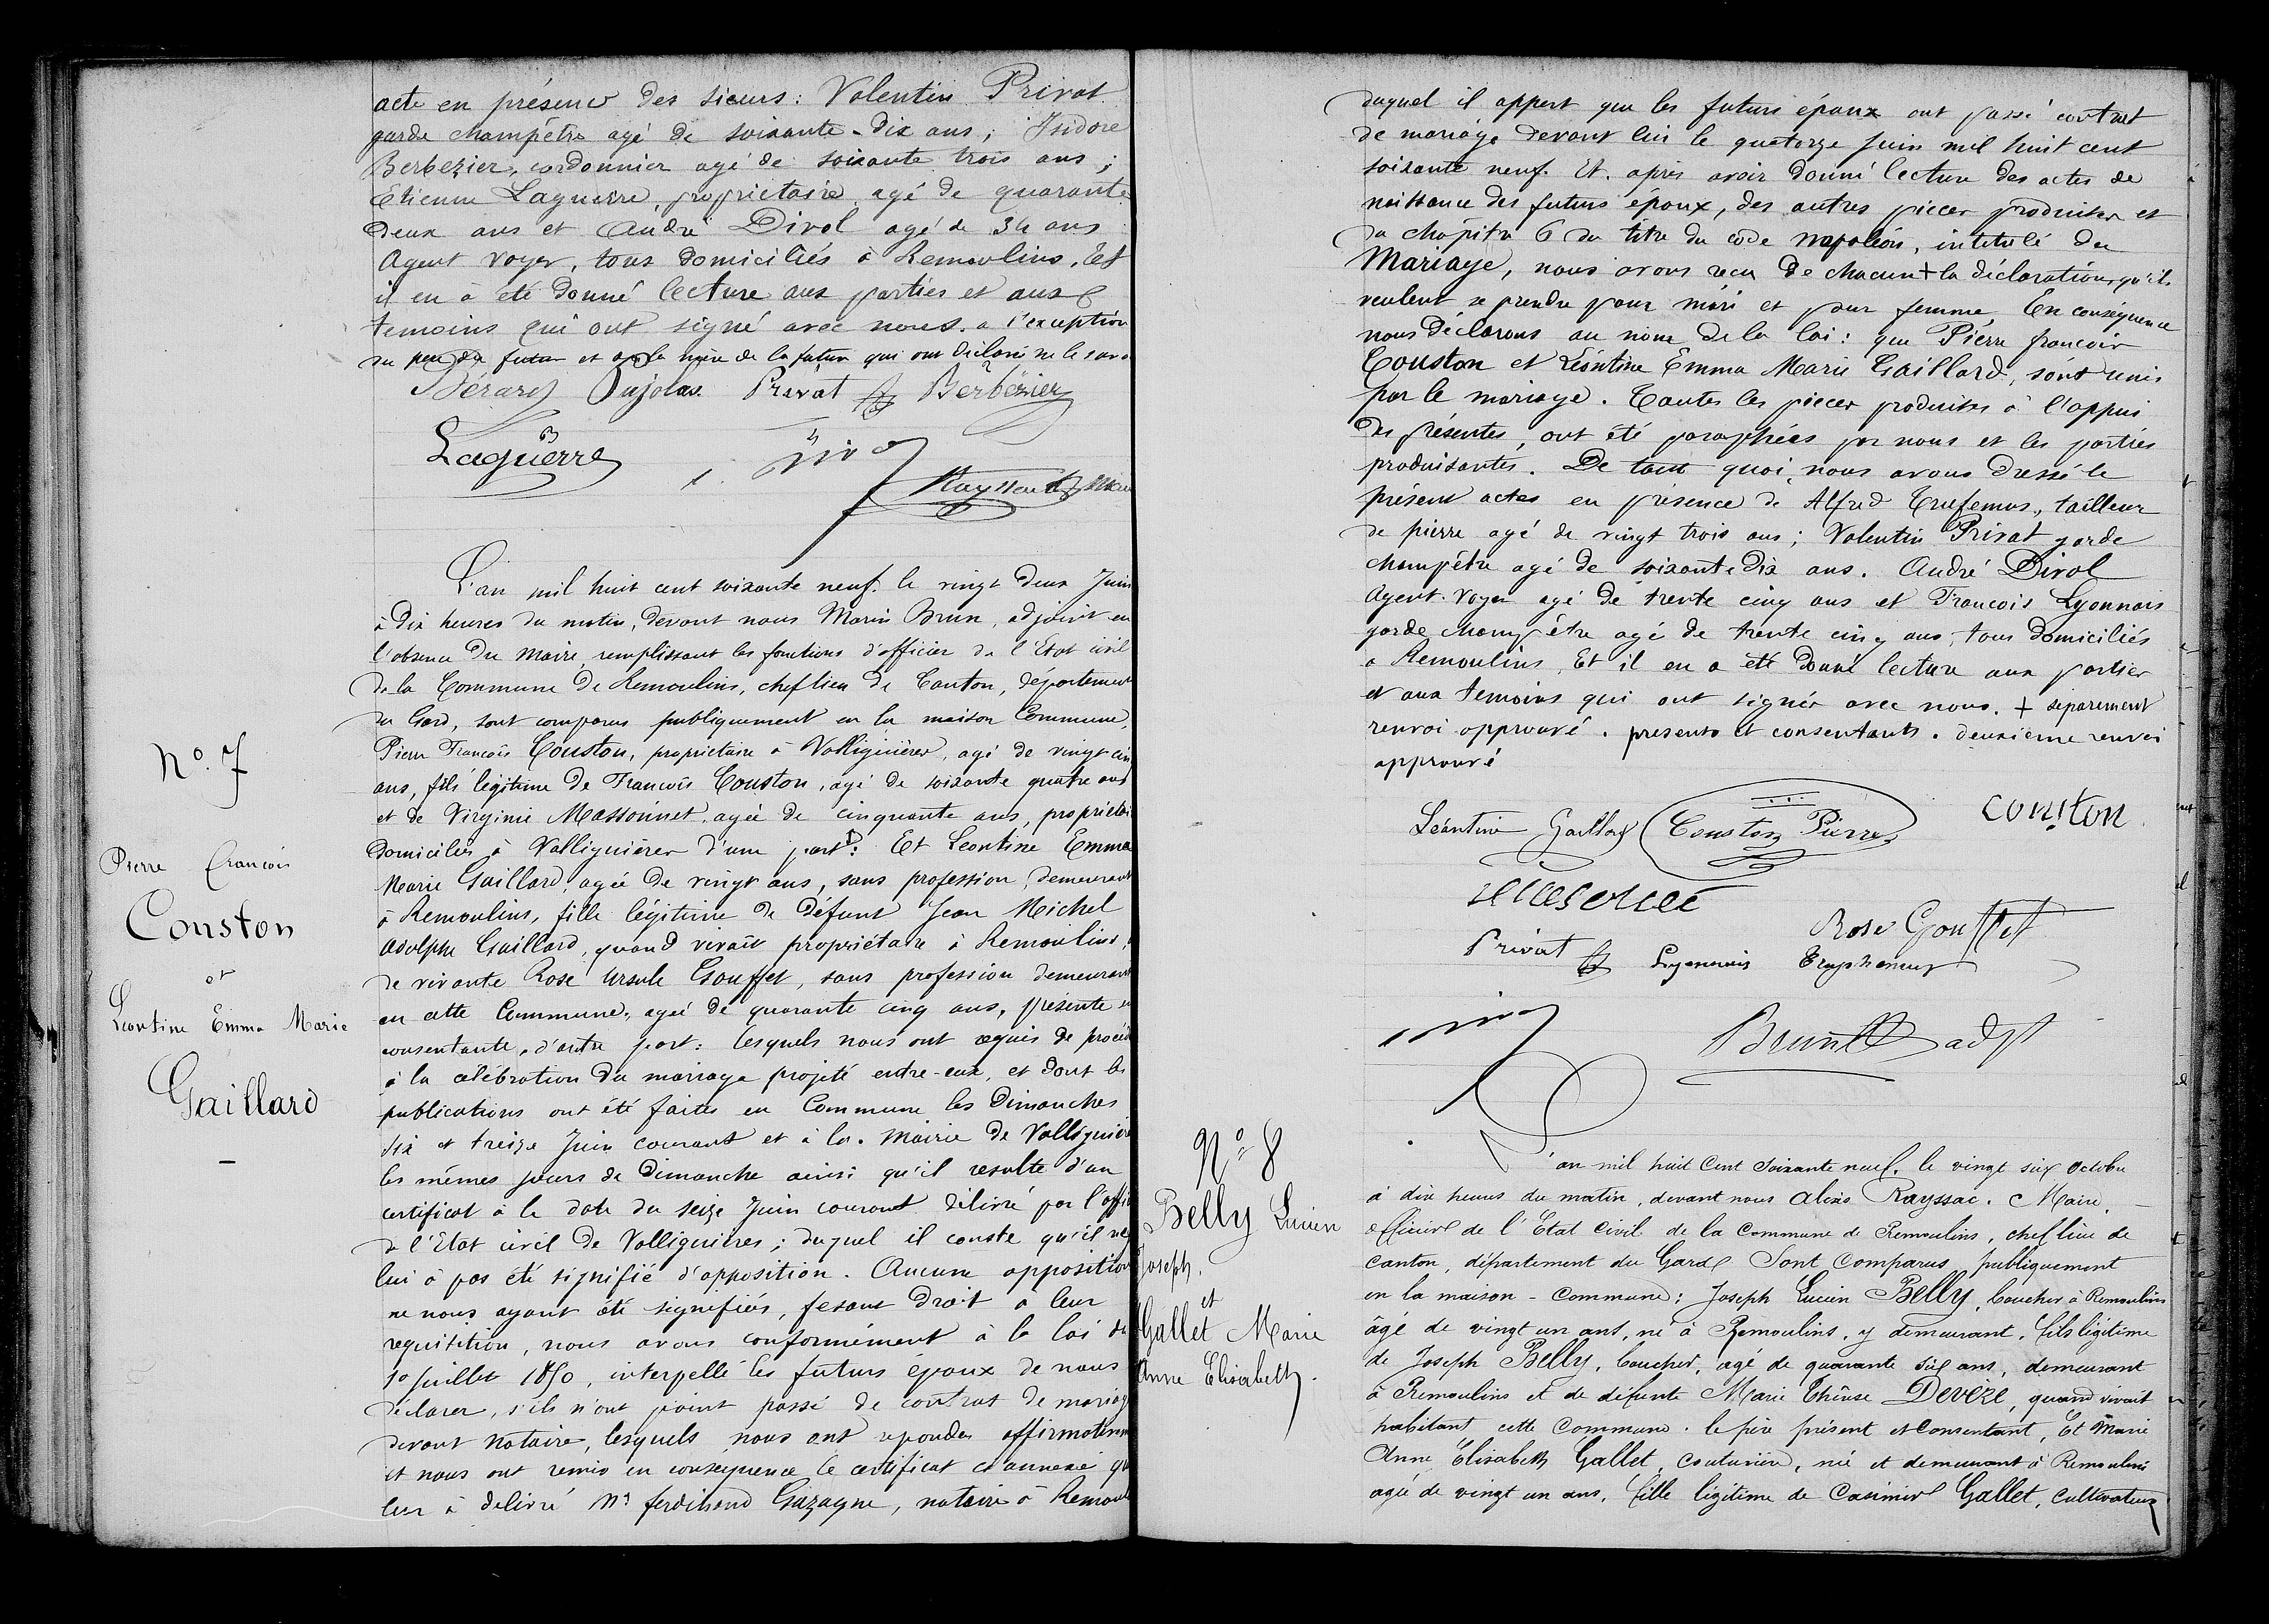 acte en présence des sieurs : Valentin Privat
garde champêtre agé de soixante-dix ans ; Isidore
Berbezier, cordonnier agé de soixante trois ans ;
Etienne Laguerre, proprietaire agé de quarante
deux ans et André Divol agé de 34 ans
Agent voyer, tous domiciliés à Remoulins, Et
il en à été donné lecture aux parties et aux
temoins qui ont signé avec nous. a l'exception
du père du futur et de la mère de la future qui ont déclaré ne le savoir
Bérard Pujolas Privat Berbezier
Laguerre Divol
Rayssac Maire
N°. 7
Pierre François
Couston
et
Leontine Emma Marie
Gaillard
L'an mil huit cent soixante neuf. le vingt deux Juin
à dix heures du matin, devant nous Marin Brun, adjoint en
l'absence du Maire, remplissant les fonctions d'officier de l'Etat civil
de la Commune de Remoulins, chef lieu de Canton, département
du Gard, sont comparus publiquement en la maison Commune,
Pierre François Couston, proprietaire à Valliguières, agé de vingt cinq
ans, fils légitime de François Couston, agé de soixante quatre ans
et de Virginie Massonnet, agée de cinquante ans, propriétai
domiciliés à Valliguières d'une part : Et Leontine Emma
Marie Gaillard, agée de vingt ans, sans profession, demeurant
à Remoulins, fille légitime de défunt Jean Michel
Adolphe Gaillard, quand vivait propriétaire à Remoulins,
de vivante Rose Ursule Gouffet, sans profession demeurant
en cette Commune, agée de quarante cinq ans, présente et
consentante, d'autre part : lesquels nous ont requis de procéd
à la célébration du mariage projeté entre-eux, et dont les
publications ont été faites en Commune les Dimanches
six et treize Juin courant et à la Mairie de Valliguière
les mêmes jours de Dimanche ainsi qu'il resulte d'un
certificat à la date du seize Juin courant délivré par l'offi
de l'Etat civil de Valliguières ; duquel il conste qu'il ne
lui à pas été signifié d'opposition. Aucune opposition
ne nous ayant été signifiés, fesant droit a leur
requisition, nous avons conformément à la loi du
10 juillet 1850, interpellé les futurs époux de nous
déclarer, s'ils n'ont point passé de contrat de mariage
devant notaire, lesquels nous ont repondu affirmativem
et nous ont remis en consequence le certificat ci annexé qu
leur à delivré Me ferdinand Gazagne, notaire à Remoul
duquel il appert que les futurs époux ont passé contrat
de mariage devant lui le quatorze juin mil huit cent
soixante neuf. Et. après avoir donné lecture des actes de
naissance des futurs époux, des autres pieces produites et
du chapitre 6 du titre du code Napoléon, intitulé du
Mariage, nous avons recu de chacun + la déclaration qu'ils
veulent se prendre pour mari et pour femme, En conséquence
nous déclarons au nom de la loi : que Pierre françois
Couston et Léontine Emma Marie Gaillard, sont unis
par le mariage. Toutes les pieces produites à l'appui
des présentes, ont été paraphées par nous et les parties
produisantes. De tout quoi, nous avons dressé le
présent actes en présence de Alfred Trufemus, tailleur
de pierre agé de vingt trois ans ; Valentin Privat garde
champêtre agé de soixante dix ans. André Divol
Agent-Voyer agé de trente cinq ans et François Lyonnais
garde champêtre agé de trente cinq ans, tous domiciliés
a Remoulins, Et il en a été donné lecture aux parties
et aux temoins qui ont signés avec nous. + séparement
renvoi approuvé. présents et consentants. deuxieme renvoi
approuvé
Léontine Gaillard Couston Pierre Couston
Rose Gouffet
Privat Lyonnais Truphemus
Divol Brun adjt
N° 8
Belly Lucien
Joseph.
et
Gallet Marie
Anne Elisabeth.
L'an mil huit Cent soixante neuf. le vingt six octobre
à dix heures du matin, devant nous Alexis Rayssac. Maire,
officier de l'Etat Civil de la Commune de Remoulins, chef lieu de
Canton, département du Gard. Sont Comparus publiquement
en la maison - Commune : Joseph Lucien Belly, boucher à Remoulins
âgé de vingt un ans, né à Remoulins, y demeurant, fils légitime
de Joseph Belly, boucher, agé de quarante six ans, demeurant
à Remoulins et de défunte Marie Thérèse Devèze, quand vivait
habitant cette Commune. le père présent et Consentant, Et Marie
Anne Elisabeth Gallet, couturière, née et demeurant à Remoulins
agée de vingt un ans, fille légitime de Casimir Gallet, Cultivateur